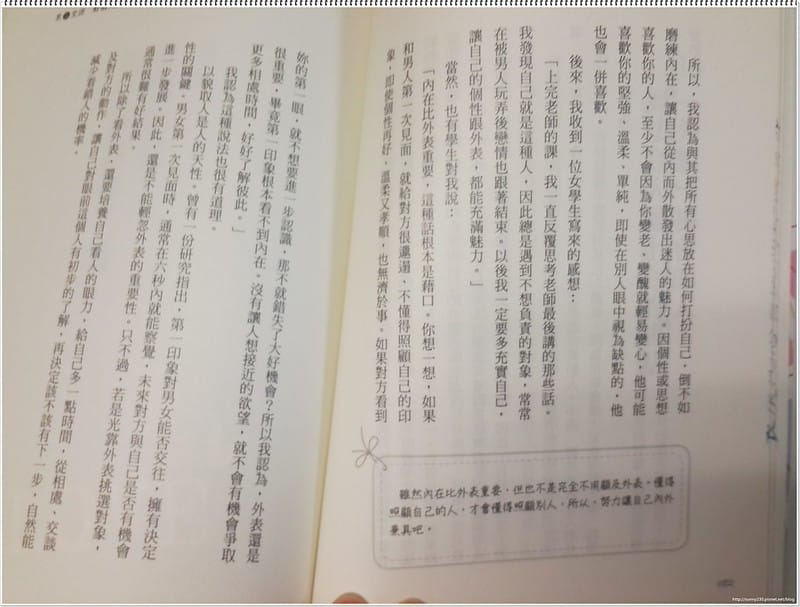 所以，我認為與其把所有心思放在如何打扮自己，倒不如
磨練內在，讓自己從內而外散發出迷人的魅力。因個性或思想
喜歡你的人，至少不會因為你變老、變醜就輕易變心，他可能
喜歡你的堅強、溫柔、單純，即使在別人眼中視為缺點的，他
也會一併喜歡。
後來，我收到一位女學生寫來的感想：
「上完老師的課，我一直反覆思考老師最後講的那些話。
我發現自己就是這種人，因此總是遇到不想負責的對象，常常
在被男人玩弄後戀情也跟著結束。以後我一定要多充實自己，
讓自己的個性跟外表，都能充滿魅力。」
當然，也有學生對我說：
「內在比外表重要，這種話根本是藉口。你想一想，如果
和男人第一次見面，就給對方很邋遢、不懂得照顧自己的印
象，即使個性再好，溫柔又孝順，也無濟於事。如果對方看到
雖然內在比外表重要，但也不是完全不用顧及外表。懂得
照顧自己的人，才會懂得照顧別人，所以，努力讓自己內外
兼具吧。
妳的第一眼，就不想要進一步認識，那不就錯失了大好機會？所以我認為，外表還是
很重要，畢竟第一印象根本看不到內在。沒有讓人想接近的欲望，就不會有機會爭取
更多相處時間，好好了解彼此。」
我認為這種說法也很有道理。
以貌取人是人的天性。曾有一份研究指出，第一印象對男女能否交往，擁有決定
性的關鍵。男女第一次見面時，通常在六秒內就能察覺，未來對方與自己是否有機會
進一步發展。因此，還是不能輕忽外表的重要性。只不過，若是光靠外表挑選對象，
通常很難有好結果。
所以除了看外表，還要培養自己看人的眼力，給自己多一點時間，從相處、交談
及對方的動作，讓自己對眼前這個人有初步的了解，再決定該不該有下一步，自然能
減少看錯人的機率。
http://sunny230.pixnet.net/blog